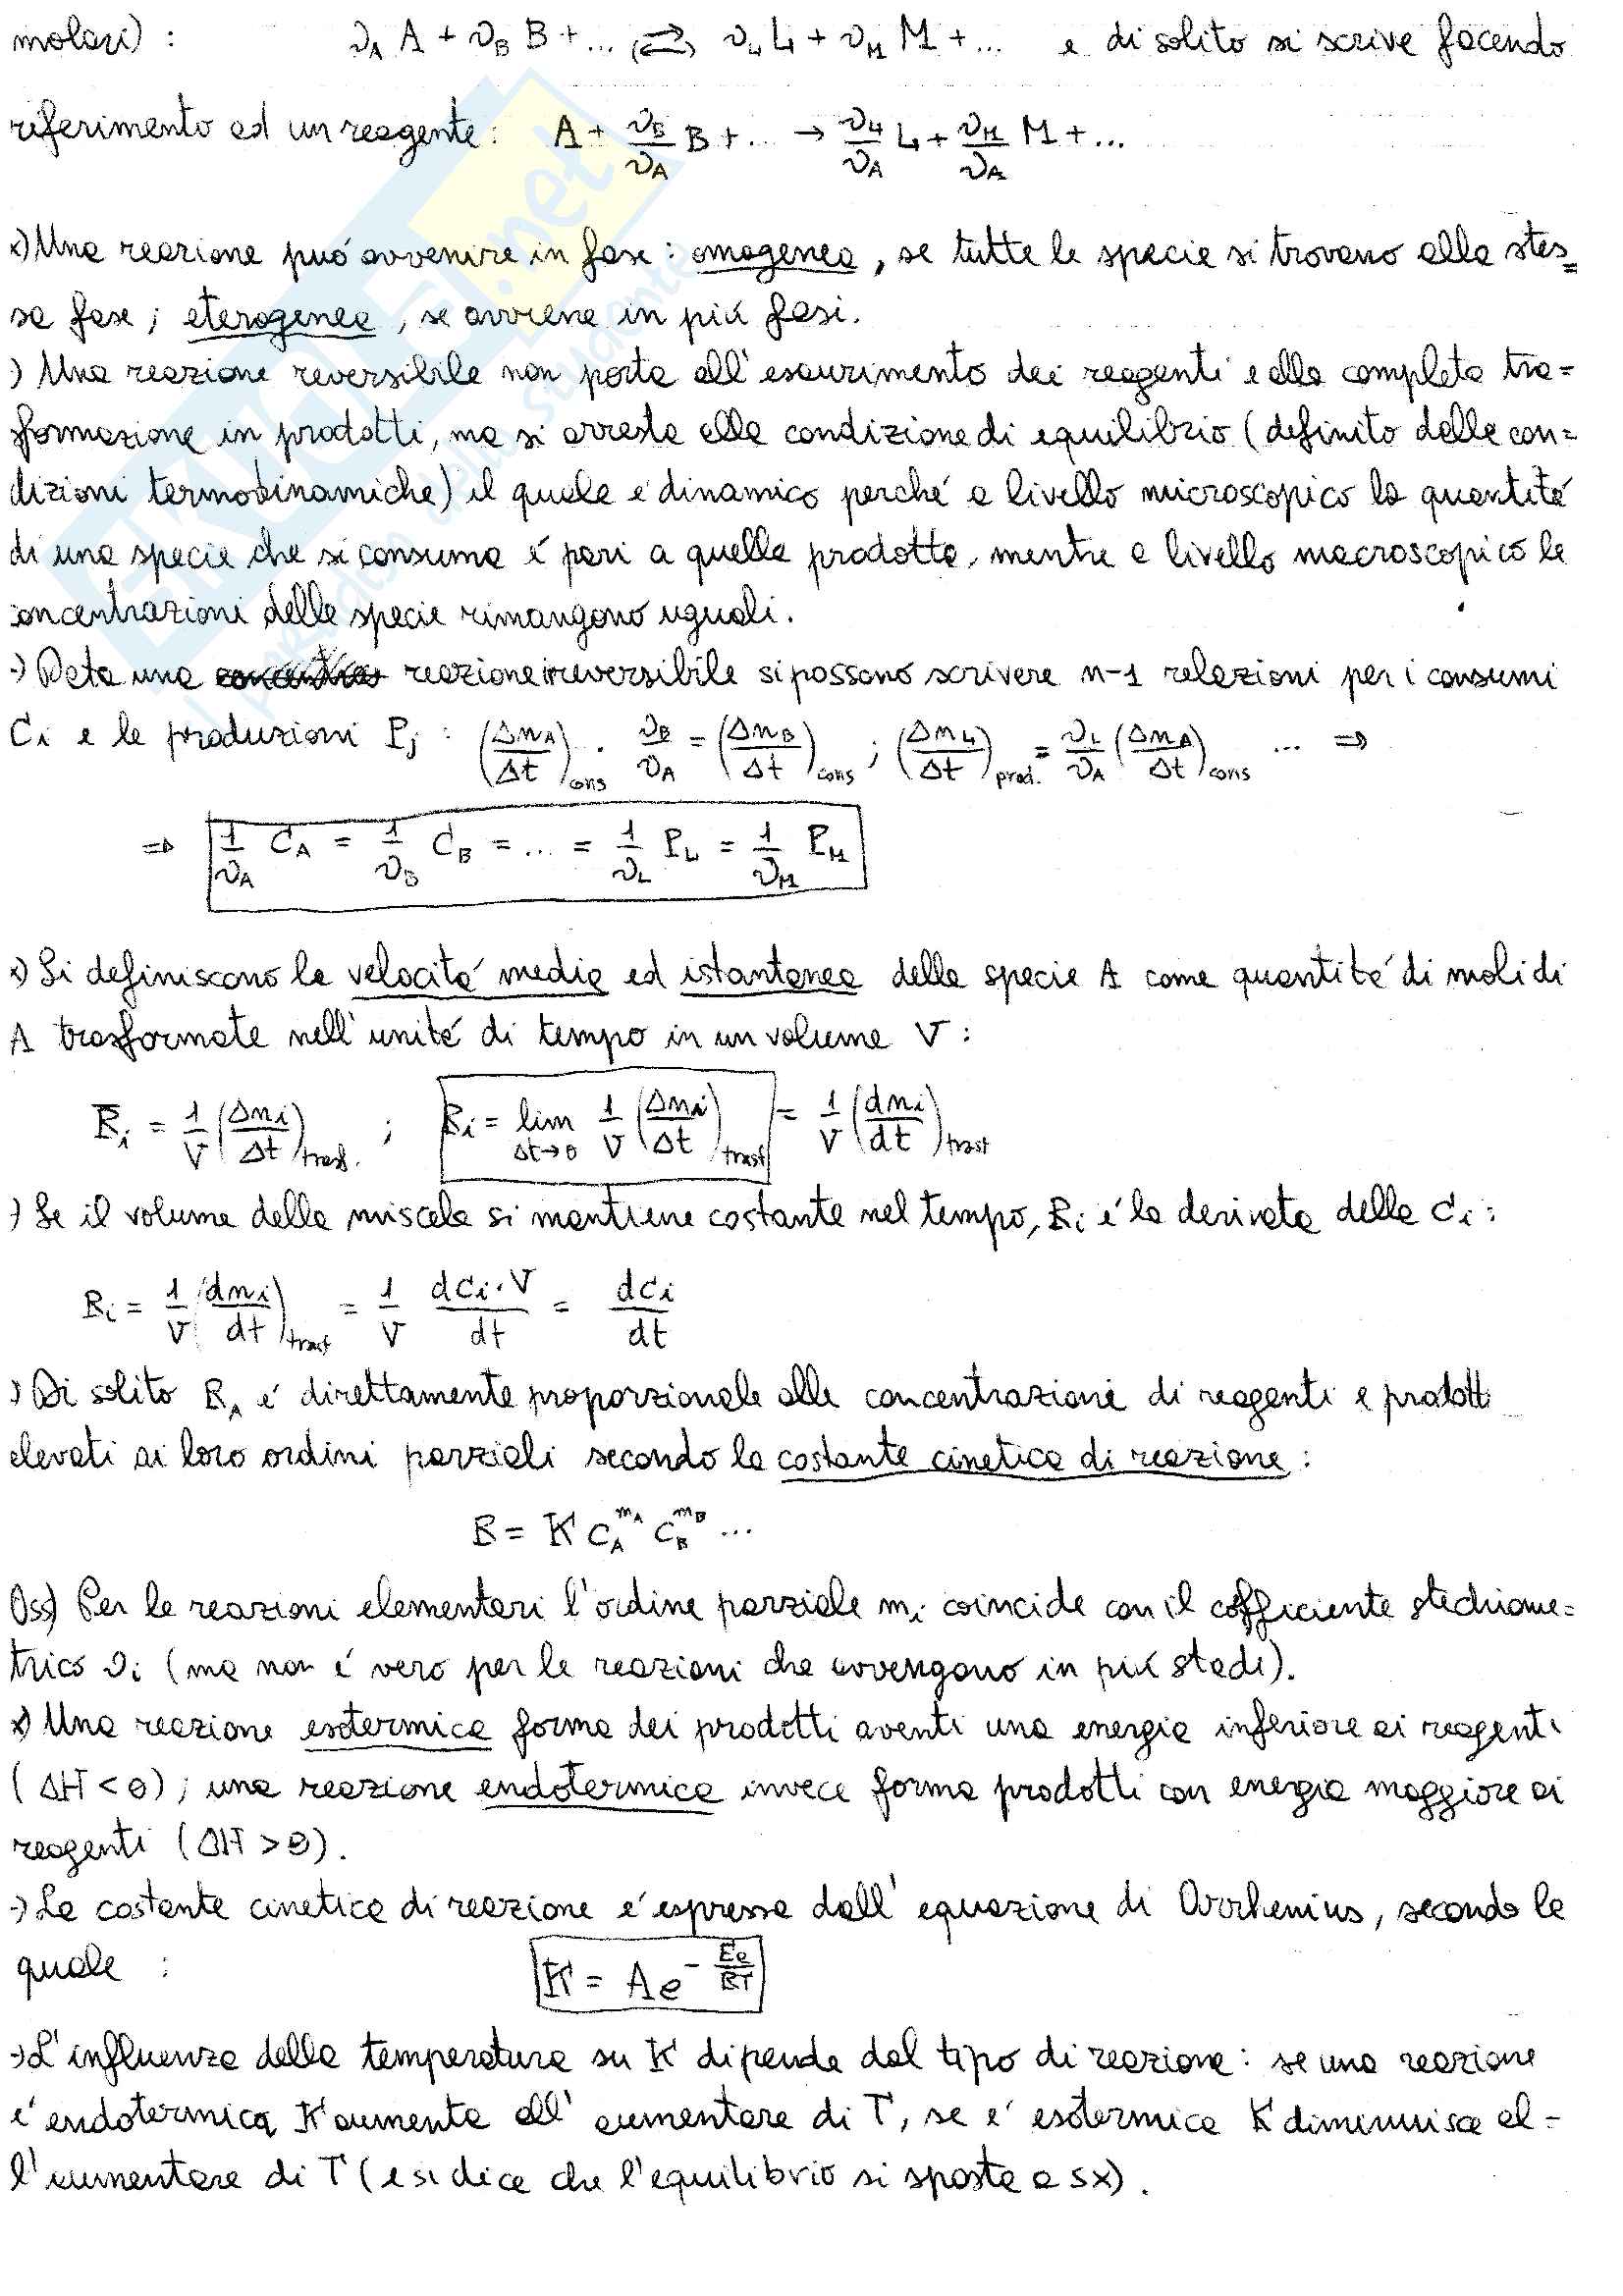 molari) : νA A + νB B + ... (⇄) νL L + νM M + ... e di solito si scrive facendo
riferimento ad un reagente: A + νB/νA B + ... → νL/νA L + νM/νA M + ...
x) Una reazione puó avvenire in fase: omogenea, se tutte le specie si trovano alla stes=
sa fase; eterogenea, se avviene in piú fasi.
·) Una reazione reversibile non porta all'esaurimento dei reagenti e alla completa tra=
sformazione in prodotti, ma si arresta alla condizione di equilibrio (definito dalle con=
dizioni termodinamiche) il quale é dinamico perché a livello microscopico la quantitá
di una specie che si consuma é pari a quella prodotta, mentre a livello macroscopico le
concentrazioni delle specie rimangono uguali.
·) Data una reazione irreversibile si possono scrivere n-1 relazioni per i consumi
Ci e le produzioni Pj : (ΔnA/Δt)cons · νB/νA = (ΔnB/Δt)cons ; (ΔnL/Δt)prod. = νL/νA (ΔnA/Δt)cons ... ⇒
⇒ 1/νA CA = 1/νB CB = ... = 1/νL PL = 1/νM PM
x) Si definiscono la velocitá media ed istantanea della specie A come quantitá di moli di
A trasformate nell'unitá di tempo in un volume V :
R̅i = 1/V (Δni/Δt)trasf. ; Ri = lim Δt→0 1/V (Δni/Δt)trasf = 1/V (dni/dt)trasf
·) Se il volume della miscela si mantiene costante nel tempo, Ri é la derivata della Ci :
Ri = 1/V (dni/dt)trasf = 1/V dCi·V/dt = dCi/dt
·) Di solito RA é direttamente proporzionale alle concentrazioni di reagenti e prodotti
elevati ai loro ordini parziali secondo la costante cinetica di reazione :
R = K CA^mA CB^mB ...
Oss) Per le reazioni elementari l'ordine parziale mi coincide con il coefficiente stechiome=
trico νi (ma non é vero per le reazioni che avvengono in piú stadi).
x) Una reazione esotermica forma dei prodotti aventi una energia inferiore ai reagenti
(ΔH < 0) ; una reazione endotermica invece forma prodotti con energia maggiore ai
reagenti (ΔH > 0).
·) La costante cinetica di reazione é espressa dall'equazione di Arrhenius, secondo la
quale : K = A e^-Ea/RT
·) L'influenza della temperatura su K dipende dal tipo di reazione: se una reazione
é endotermica, K aumenta all'aumentare di T, se é esotermica K diminuisce al=
l'aumentare di T (e si dice che l'equilibrio si sposta a sx).